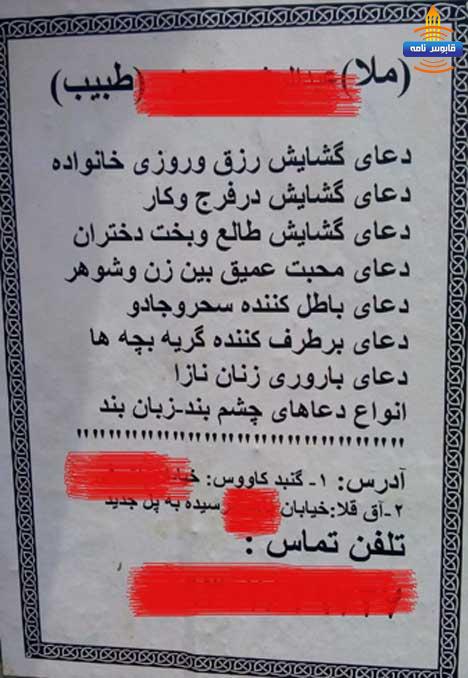 قابوس نامه
(ملا) (طبیب)
دعای گشایش رزق وروزی خانواده
دعای گشایش درفرج وکار
دعای گشایش طالع وبخت دختران
دعای محبت عمیق بین زن وشوهر
دعای باطل کننده سحروجادو
دعای برطرف کننده گریه بچه ها
دعای باروری زنان نازا
انواع دعاهای چشم بند-زبان بند
آدرس: ۱- گنبد کاووس:
۲-آق قلا:خیابان رسیده به پل جدید
تلفن تماس :